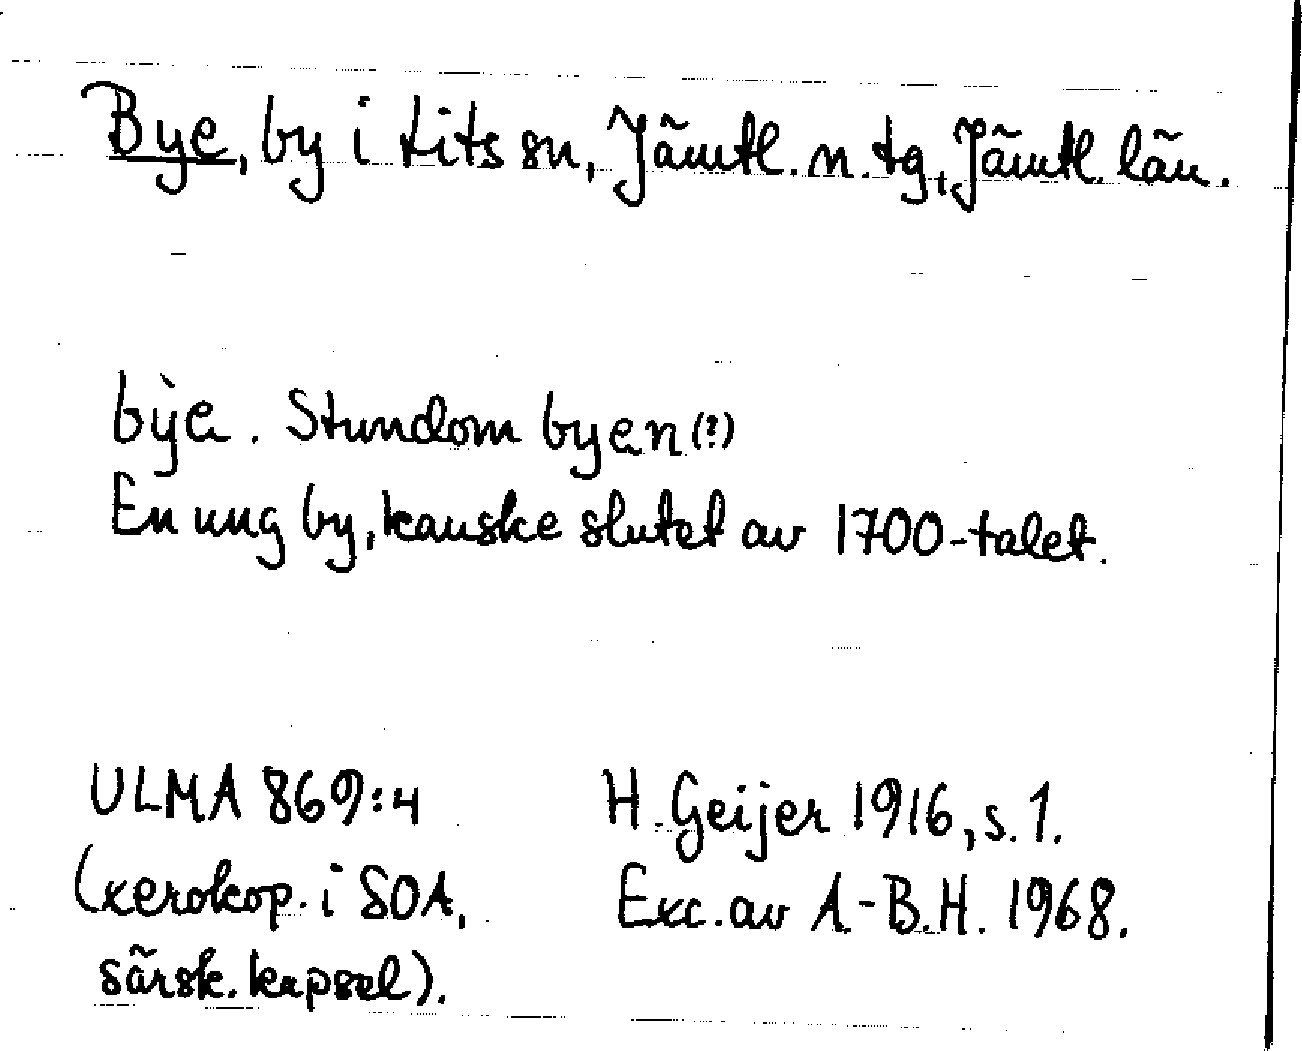 Bye, by i Lits sn, Jämtl. n. tg, Jämtl. län.
bỳe. Stundom byen (?)
En ung by, kanske slutet av 1700-talet.
ULMA 869:4 H. Geijer 1916, s. 1.
(xerokop. i SOA, Exc. av A.-B.H. 1968.
särsk. kapsel).